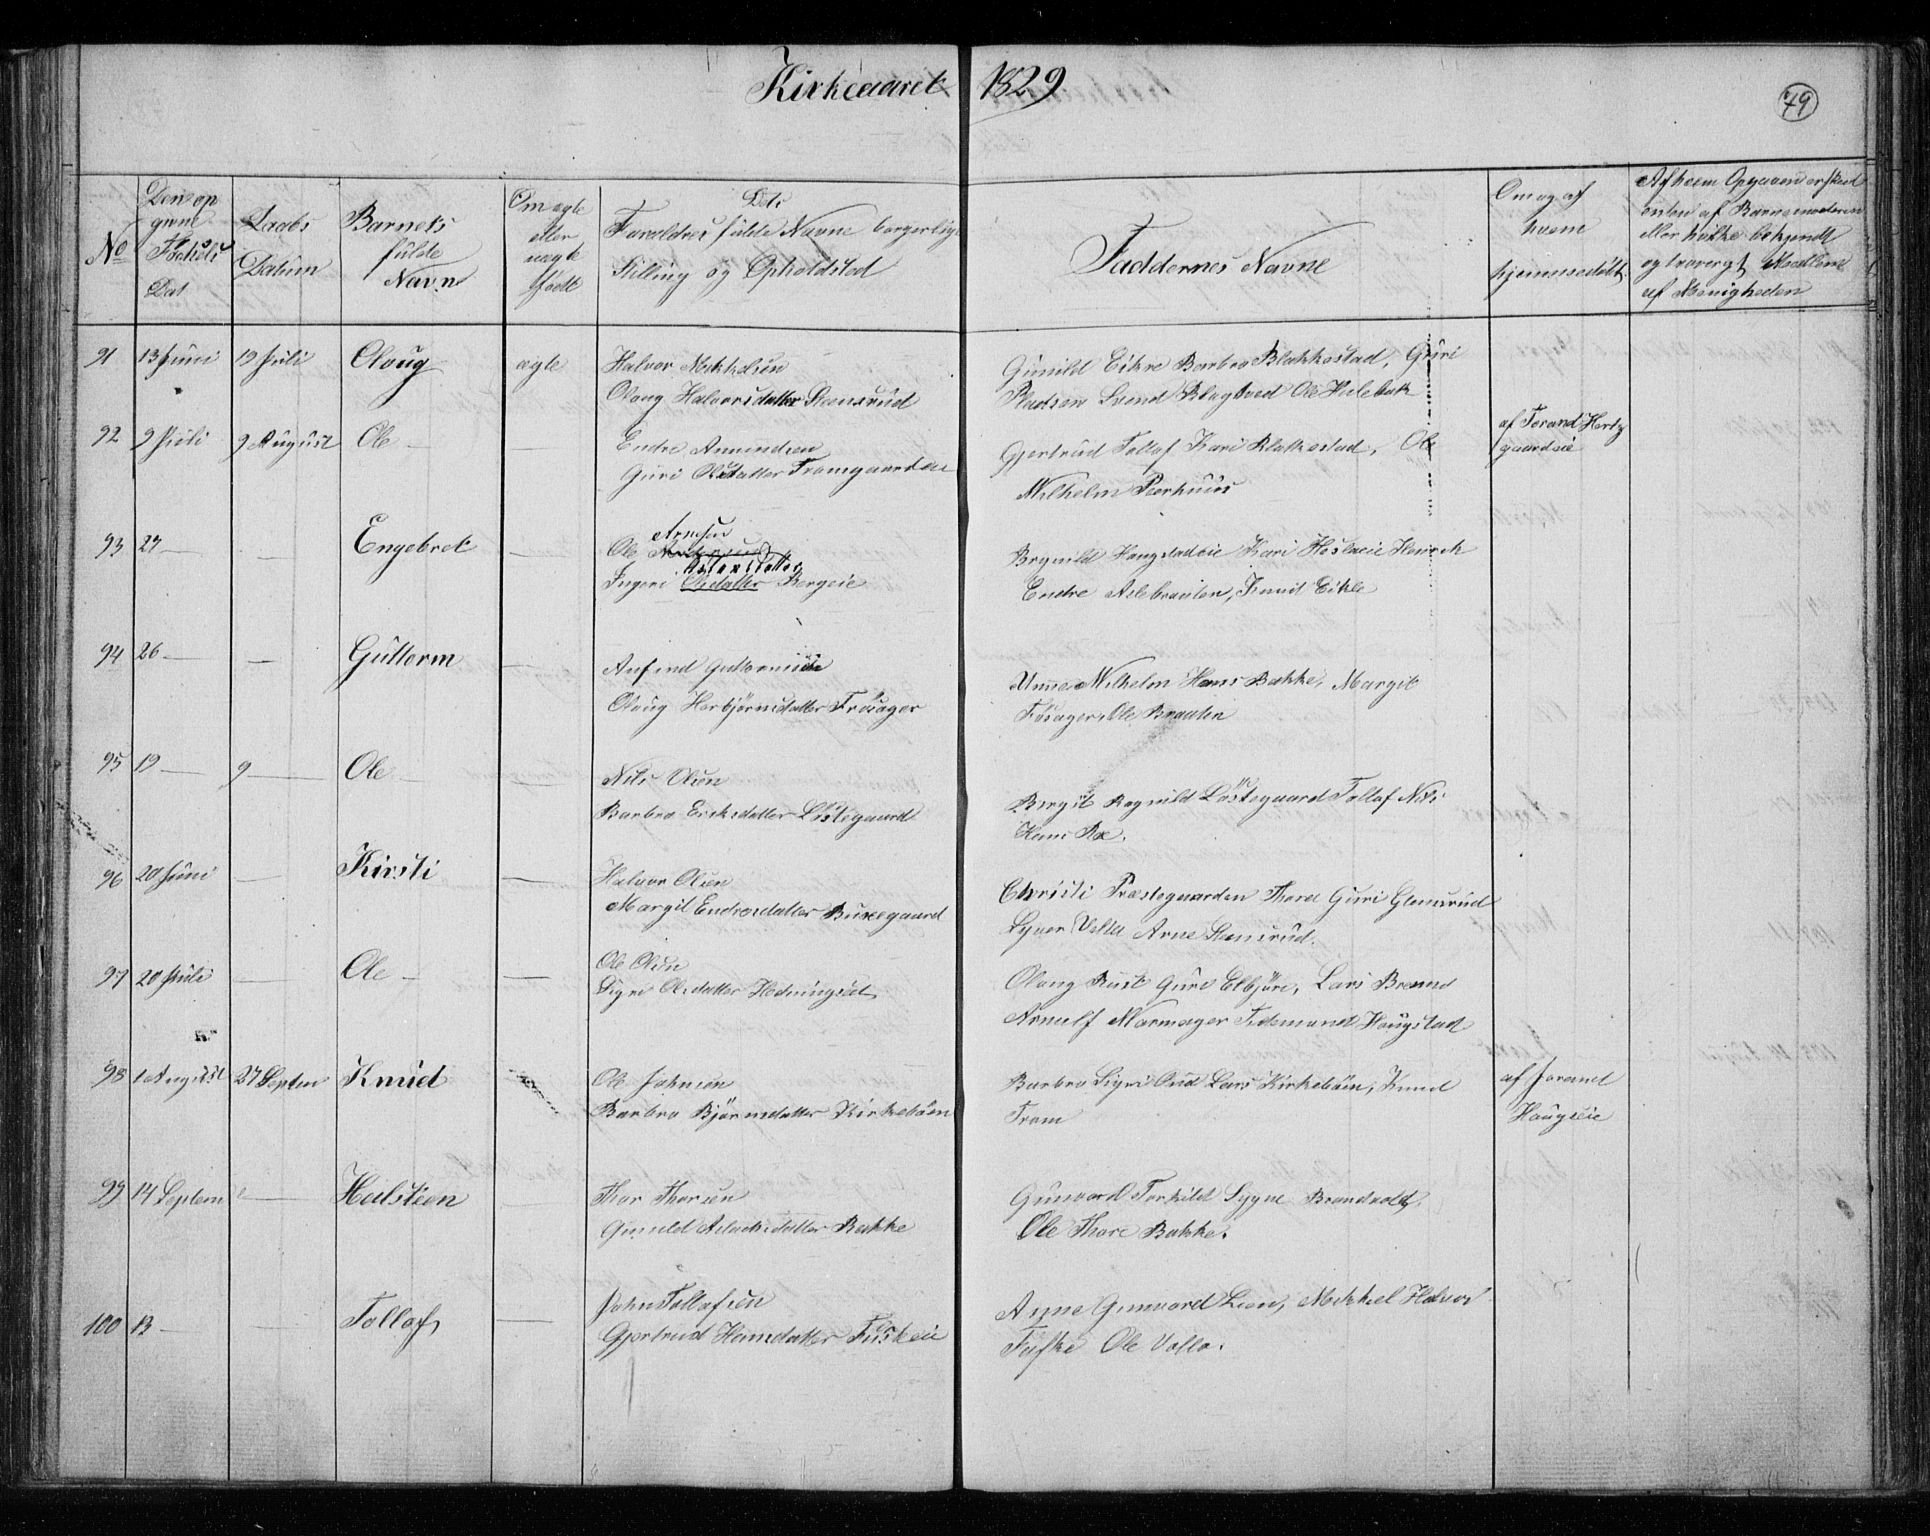 Kirkeaaret 1829
79
No
Den op
givne
Fødsels
Dat
Daabs
Datum
Barnets
fulde
Navn
Om ægte
eller
uægte
født
Dets
Forældres fulde Navne borgerlig
Stilling og Opholdsted
Faddernes Navne
Om og af
hvem
hjemmedøbt
Af hvem Opgaven er skeed
enten af Barnemoderen
eller hvilke bekjendt
og troværgt Medlem
af Menigheden
91 13 Juni 19 Juli Oloug ægte Halvor Mikkelsen
Oloug Halvorsdatter Steensrud
Gunild Eikre Barbro Blakkestad, Guri
Pladsen Svend Blagtved Ole Hulebak
92 9 Juli 9 August Ole — — Endre Amundsen
Guri Olsdatter Framgaarden
Gjertrud Tollef Kari Blakkestad, Ole
Wilhelm Peerhuus
af Torand Hertz
gaardeie
93 27 — — Engebret — Arnesen
Ole
Ingeri Olsdatter Bergeie
Brynild Haugstadeie Kari Hesleeie Henrik
Endre Aslebraaten, Knud Eikle
94 26 — — Guttorm — Anfind Guttormsen
Oloug Herbjørnsdatter Frøsager
Unne Wilhelm Hans Bakke, Margit
Føsager, Ole Braaten
95 19 — 9 — Ole — Nils Olsen
Barbro Eriksdatter Løstegaard
Birgit Ragnild Løstegaard Tollef Nils
Hans Roe.
96 20 Juni — Kirsti — Halvor Olsen
Margit Endresdatter Ruseegaard
Christi Præstegaarden Thora Guri Glensrud
Syver Villa Arne Steensrud.
97 20 Juli — Ole — — Ole Olsen
Sigri Olsdatter
Oloug Rust Guri Elbjøre, Lars Brenno
Arnulf Mormager Tidemand Haugstad
98 1 August 27 Septem Knud Ole Johnsen
Barbro Bjørnsdatter Kirkebøen
Barbro Sigri Oud Lars Kirkebøen, Knud
From
af Jorand
Haugseie
99 14 Septem — Halsteen — Thor Thorsen
Gunild Aslacksdatter Bakke
Gunvord Torkild Sygne Brandvold,
Ole Thore Bakke.
100 13 — — Tollef — John Tollefsen
Gjertrud Hansdatter Fuskeie
Anne Gunvord Lien, Mikkel Halvor
Fuske Ole Valla.